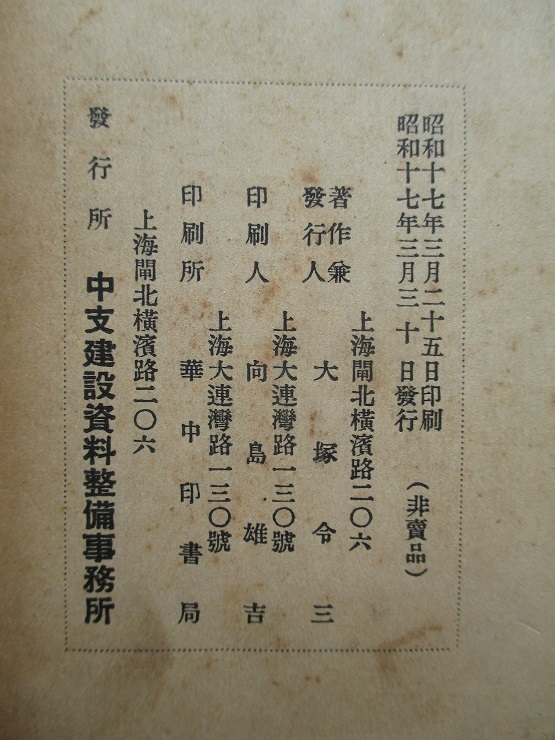 昭和十七年三月二十五日印刷
昭和十七年三月三十日發行
(非賣品)
上海閘北橫濱路二〇六
著作兼
發行人 大塚令三
上海大連灣路一三〇號
印刷人 向島雄吉
上海大連灣路一三〇號
印刷所 華中印書局
上海閘北橫濱路二〇六
發行所 中支建設資料整備事務所